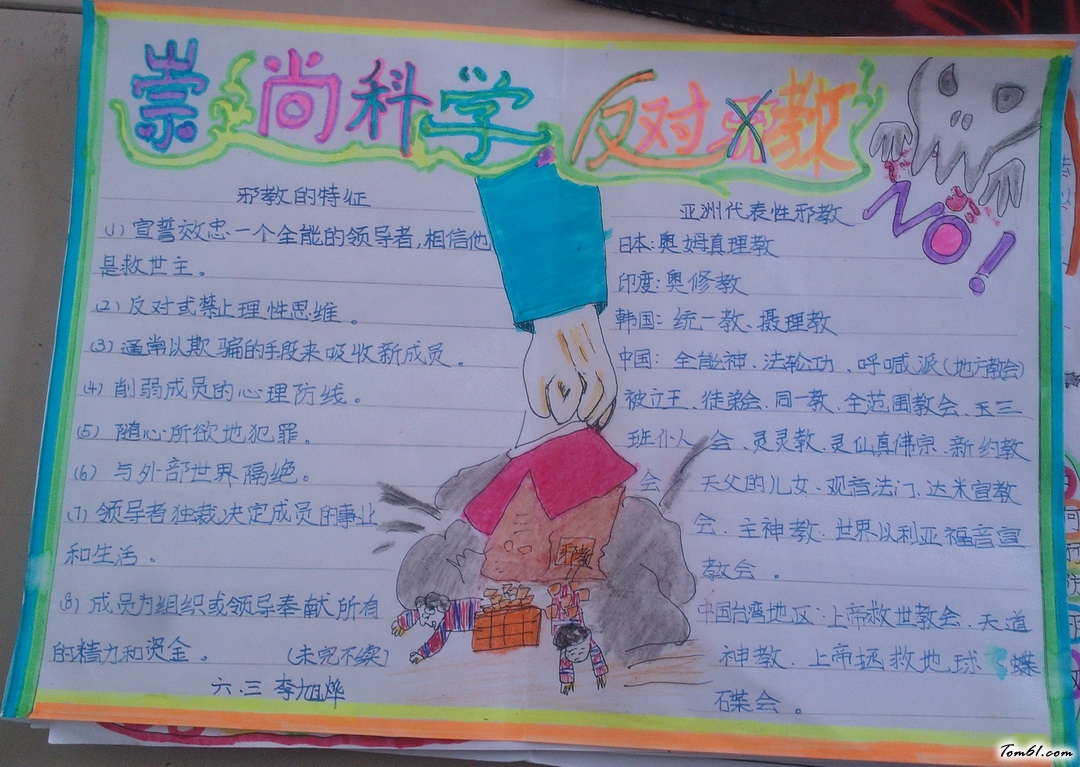 崇尚科学 反对邪教
NO!
邪教的特征
(1) 宣誓效忠一个全能的领导者,相信他
是救世主。
(2) 反对或禁止理性思维。
(3) 通常以欺骗的手段来吸收新成员。
(4) 削弱成员的心理防线。
(5) 随心所欲地犯罪。
(6) 与外部世界隔绝。
(7) 领导者独裁决定成员的事业
和生活。
(8) 成员为组织或领导奉献所有
的精力和资金。 (未完不续)
六.三 李旭烨
邪教
亚洲代表性邪教
日本:奥姆真理教
印度:奥修教
韩国:统一教、摄理教
中国:全能神、法轮功、呼喊派(地方教会)
被立王、徒弟会、同一教、全范围教会、三
班仆人会、灵灵教、灵仙真佛宗、新约教
会、天父的儿女、观音法门、达米宣教
会、主神教、世界以利亚福音宣
教会。
中国台湾地区:上帝救世教会、天道
神教、上帝拯救地球 蝶
碟会。
Tom61.com